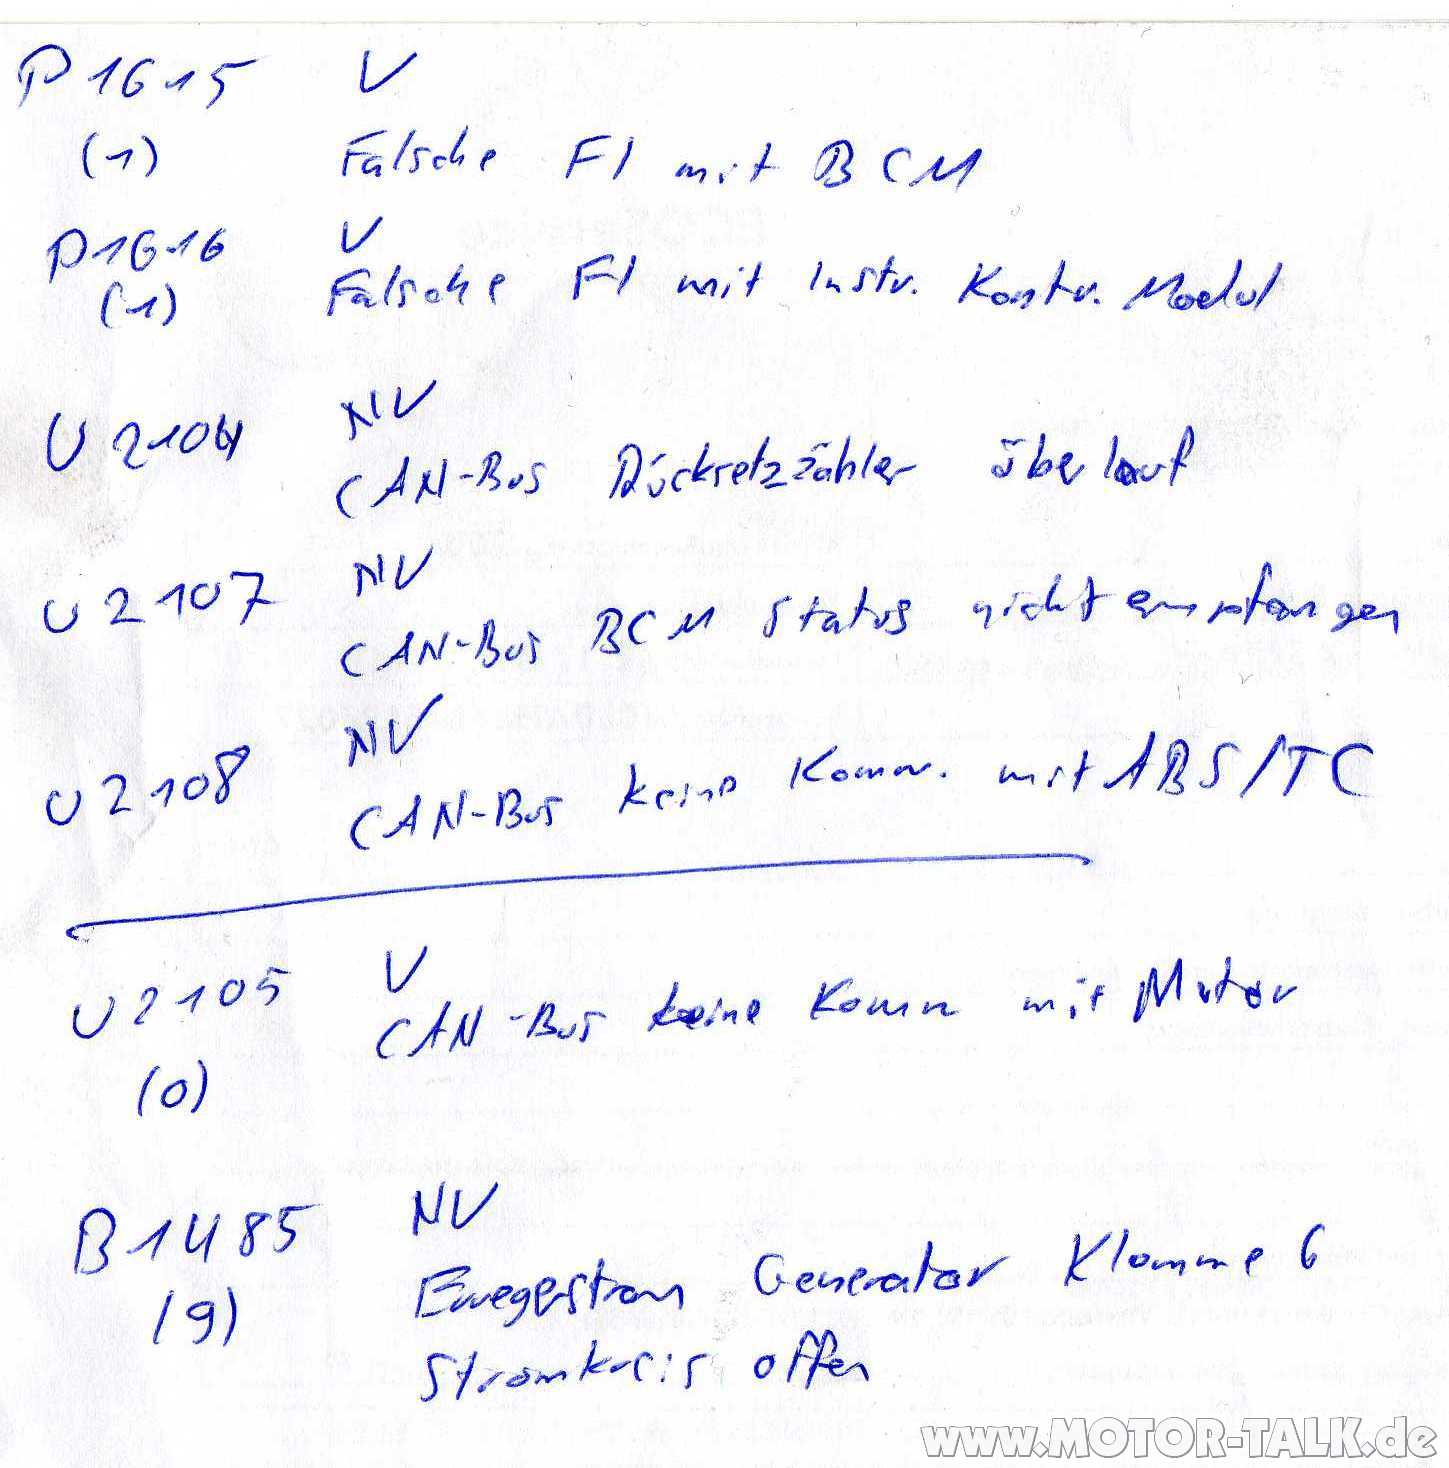 P1615 V
(1) Falsche FI mit BCM
P1616 V
(1) Falsche FI mit Instr. Kontr. Modul
U2104 NV
CAN-Bus Rücksetzzähler überlauf
U2107 NV
CAN-Bus BCM Status nicht empfangen
U2108 NV
CAN-Bus keine Komm. mit ABS/TC
U2105 V
CAN-Bus keine Komm mit Motor
(0)
B1485 NV
(9) Erregerstrom Generator Klemme 6
Stromkreis offen
www.MOTOR-TALK.de